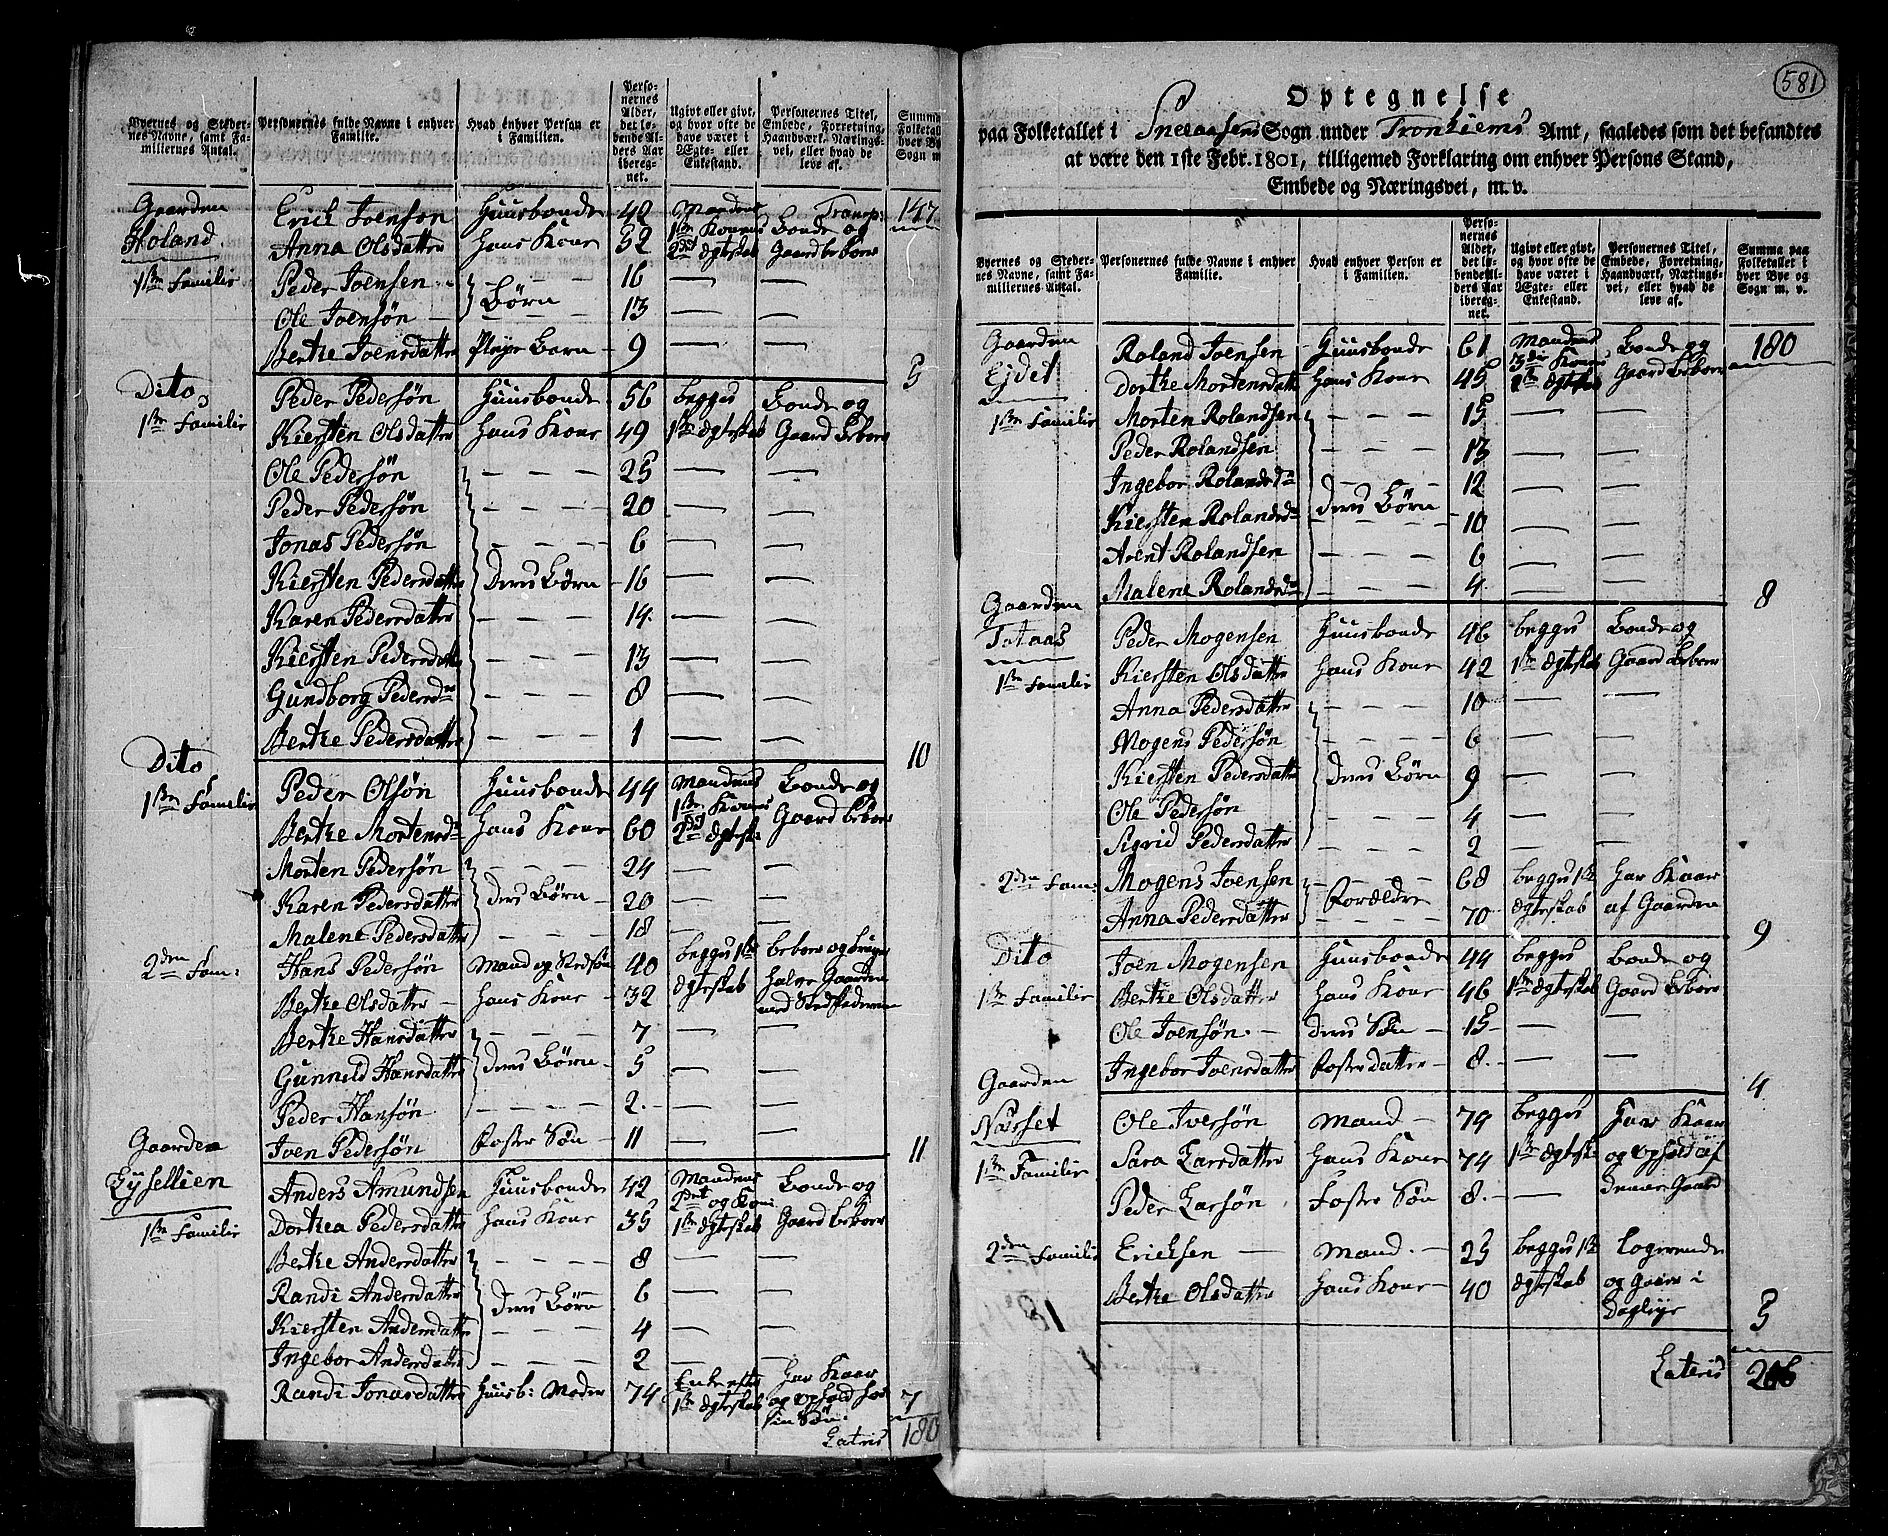 Byernes og Stedernes Navne, samt Familiernes Antal. | Personernes fulde Navne i enhver Familie. | Hvad enhver Person er i Familien. | Personernes Alder, det løbende Alders Aar iberegnet. | Ugivt eller givt, og hvor ofte de have været i Ægte- eller Enkestand. | Personernes Titel, Embede, Forretning, Haandværk, Næringsvei, eller hvad de leve af. | Summa Folketal hver By Sogn m.
Gaarden Erich Joensøn Huusbonde 40 Mandens Transp: 147
Holand Anna Olsdatter Hans Kone 52 1ste Konens 2det Ægteskab Bonde og Gaardbeboer
1ste Familie Peder Joensen 16 — —
Ole Joensøn Børn 13 — —
Berthe Joensdatter Pleye Barn 9 — — 5
Dito Peder Pedersøn Huusbonde 56 begges Bonde og
1ste Familie Kiersten Olsdatter Hans Kone 49 1ste Ægteskab Gaard beboer
Ole Pedersøn — — — 25 — —
Peder Pedersøn — — — 20 — —
Jonas Pedersøn — — — 6 — —
Kiersten Pedersdatter Deres Børn 16 — —
Karen Pedersdatter — — — 14 — —
Kiersten Pedersdatter — — — 13 — —
Gundborg Pedersdr — — — 8 — —
Berthe Pedersdatter — — — 1 — — 10
Dito Peder Olsøn Huusbonde 44 Mandens Bonde og
1ste Familie Berthe Mortensdr Hans Kone 60 1ste Konens 2det Ægtesk: Gaard beboer
Morten Pedersøn — — — 24 — —
Karen Pedersdatter Deres Børn 20 — —
Malene Pedersdatter — — — 18 — —
2den Fam: Hans Pedersøn Mand og Stedsøn 40 begges 1ste beboer og bruger
Berthe Olsdatter Hans Kone 32 Ægteskab halve Gaarden med Stedfaderen
Berthe Hansdatter — — — 7 — —
Gunnild Hansdatter Deres Børn 5 — —
Peder Hansøn — — — 2 — —
Joen Pedersøn Foster Søn 11 — — 11
Gaarden Anders Amundsen Huusbonde 42 Mandens Bonde og
Gysellien Dorthea Pedersdatter Hans Kone 35 2det og Kone 1ste Ægteskab Gaard beboer
1ste Familie Berthe Andersdatter — — — 8 — —
Randi Andersdatter Deres Børn 6 — —
Kiersten Andersdatter — — — 4 — —
Ingebor Andersdatter — — — 2 — —
Randi Jonasdatter Huusb: Moder 74 Enke efter 1ste Ægteskab Har Kaar og ophold hos sin Søn: 7
Lateris 180
581
Optegnelse
paa Folketallet i Sneaasens Sogn under Tronhiems Amt, saaledes som det befandtes
at være den 1ste Febr. 1801, tilligemed Forklaring om enhver Persons Stand,
Embede og Næringsvei, m. v.
Byernes og Stedernes Navne, samt Familiernes Antal. | Personernes fulde Navne i enhver Familie. | Hvad enhver Person er i Familien. | Personernes Alder, det løbende Alders Aar iberegnet. | Ugivt eller givt, og hvor ofte de have været i Ægte- eller Enkestand. | Personernes Titel, Embede, Forretning, Haandværk, Næringsvei, eller hvad de leve af. | Summa paa Folketallet i hver Bye og Sogn m. v.
Gaarden Roland Joensen Huusbonde 61 Mandens Bonde og 180
Ejdet Dorthe Mortensdatt Hans Kone 45 3die Konens 1ste Ægteskab Gaard beboer
1ste Familie Morten Rolandsen — — — 15 — —
Peder Rolandsen — — — 13 — —
Ingebor Rolandsdr — — — 12 — —
Kiersten Rolandsdr Deres Børn 10 — —
Arent Rolandsen — — — 6 — —
Malene Rolandsdr — — — 4 — — 8
Gaarden
Totaas Peder Mogensen Huusbonde 46 begges Bonde og
1ste Familie Kiersten Olsdatter Hans Kone 42 1ste Ægteskab Gaard beboer
Anna Pedersdatter — — — 10 — —
Mogens Pedersøn — — — 6 — —
Kiersten Pedersdatter Deres Børn 9 — —
Ole Pedersøn — — — 4 — —
Sigrid Pedersdatter — — — 2 — —
2den Fam: Mogens Joensen — — — 68 begges 1ste Har Kaar
Anna Pedersdatter Forældre 70 Ægteskab af Gaarden 9
Dito Joen Mogensen Huusbonde 44 begges Bonde og
1ste Familie Berthe Olsdatter Hans Kone 46 1ste Ægteskab Gaard beboer
Ole Joensøn Deres Søn 15 — —
Ingebor Joensdatter Foster datter 8 — — 4
Gaarden
Nausset Ole Iversøn Mand 74 begges Har Kaar
1ste Familie Sara Larsdatter Hans Kone 74 1ste Ægtesk og ophold af
Peder Larsøn Foster Søn 8 — denne Gaard
2den Familie Ericksen Mand 25 begges 1ste Logerende
Berthe Olsdatter Hans Kone 40 Ægteskab og gaaer i Dagleye 5
Lateris 206